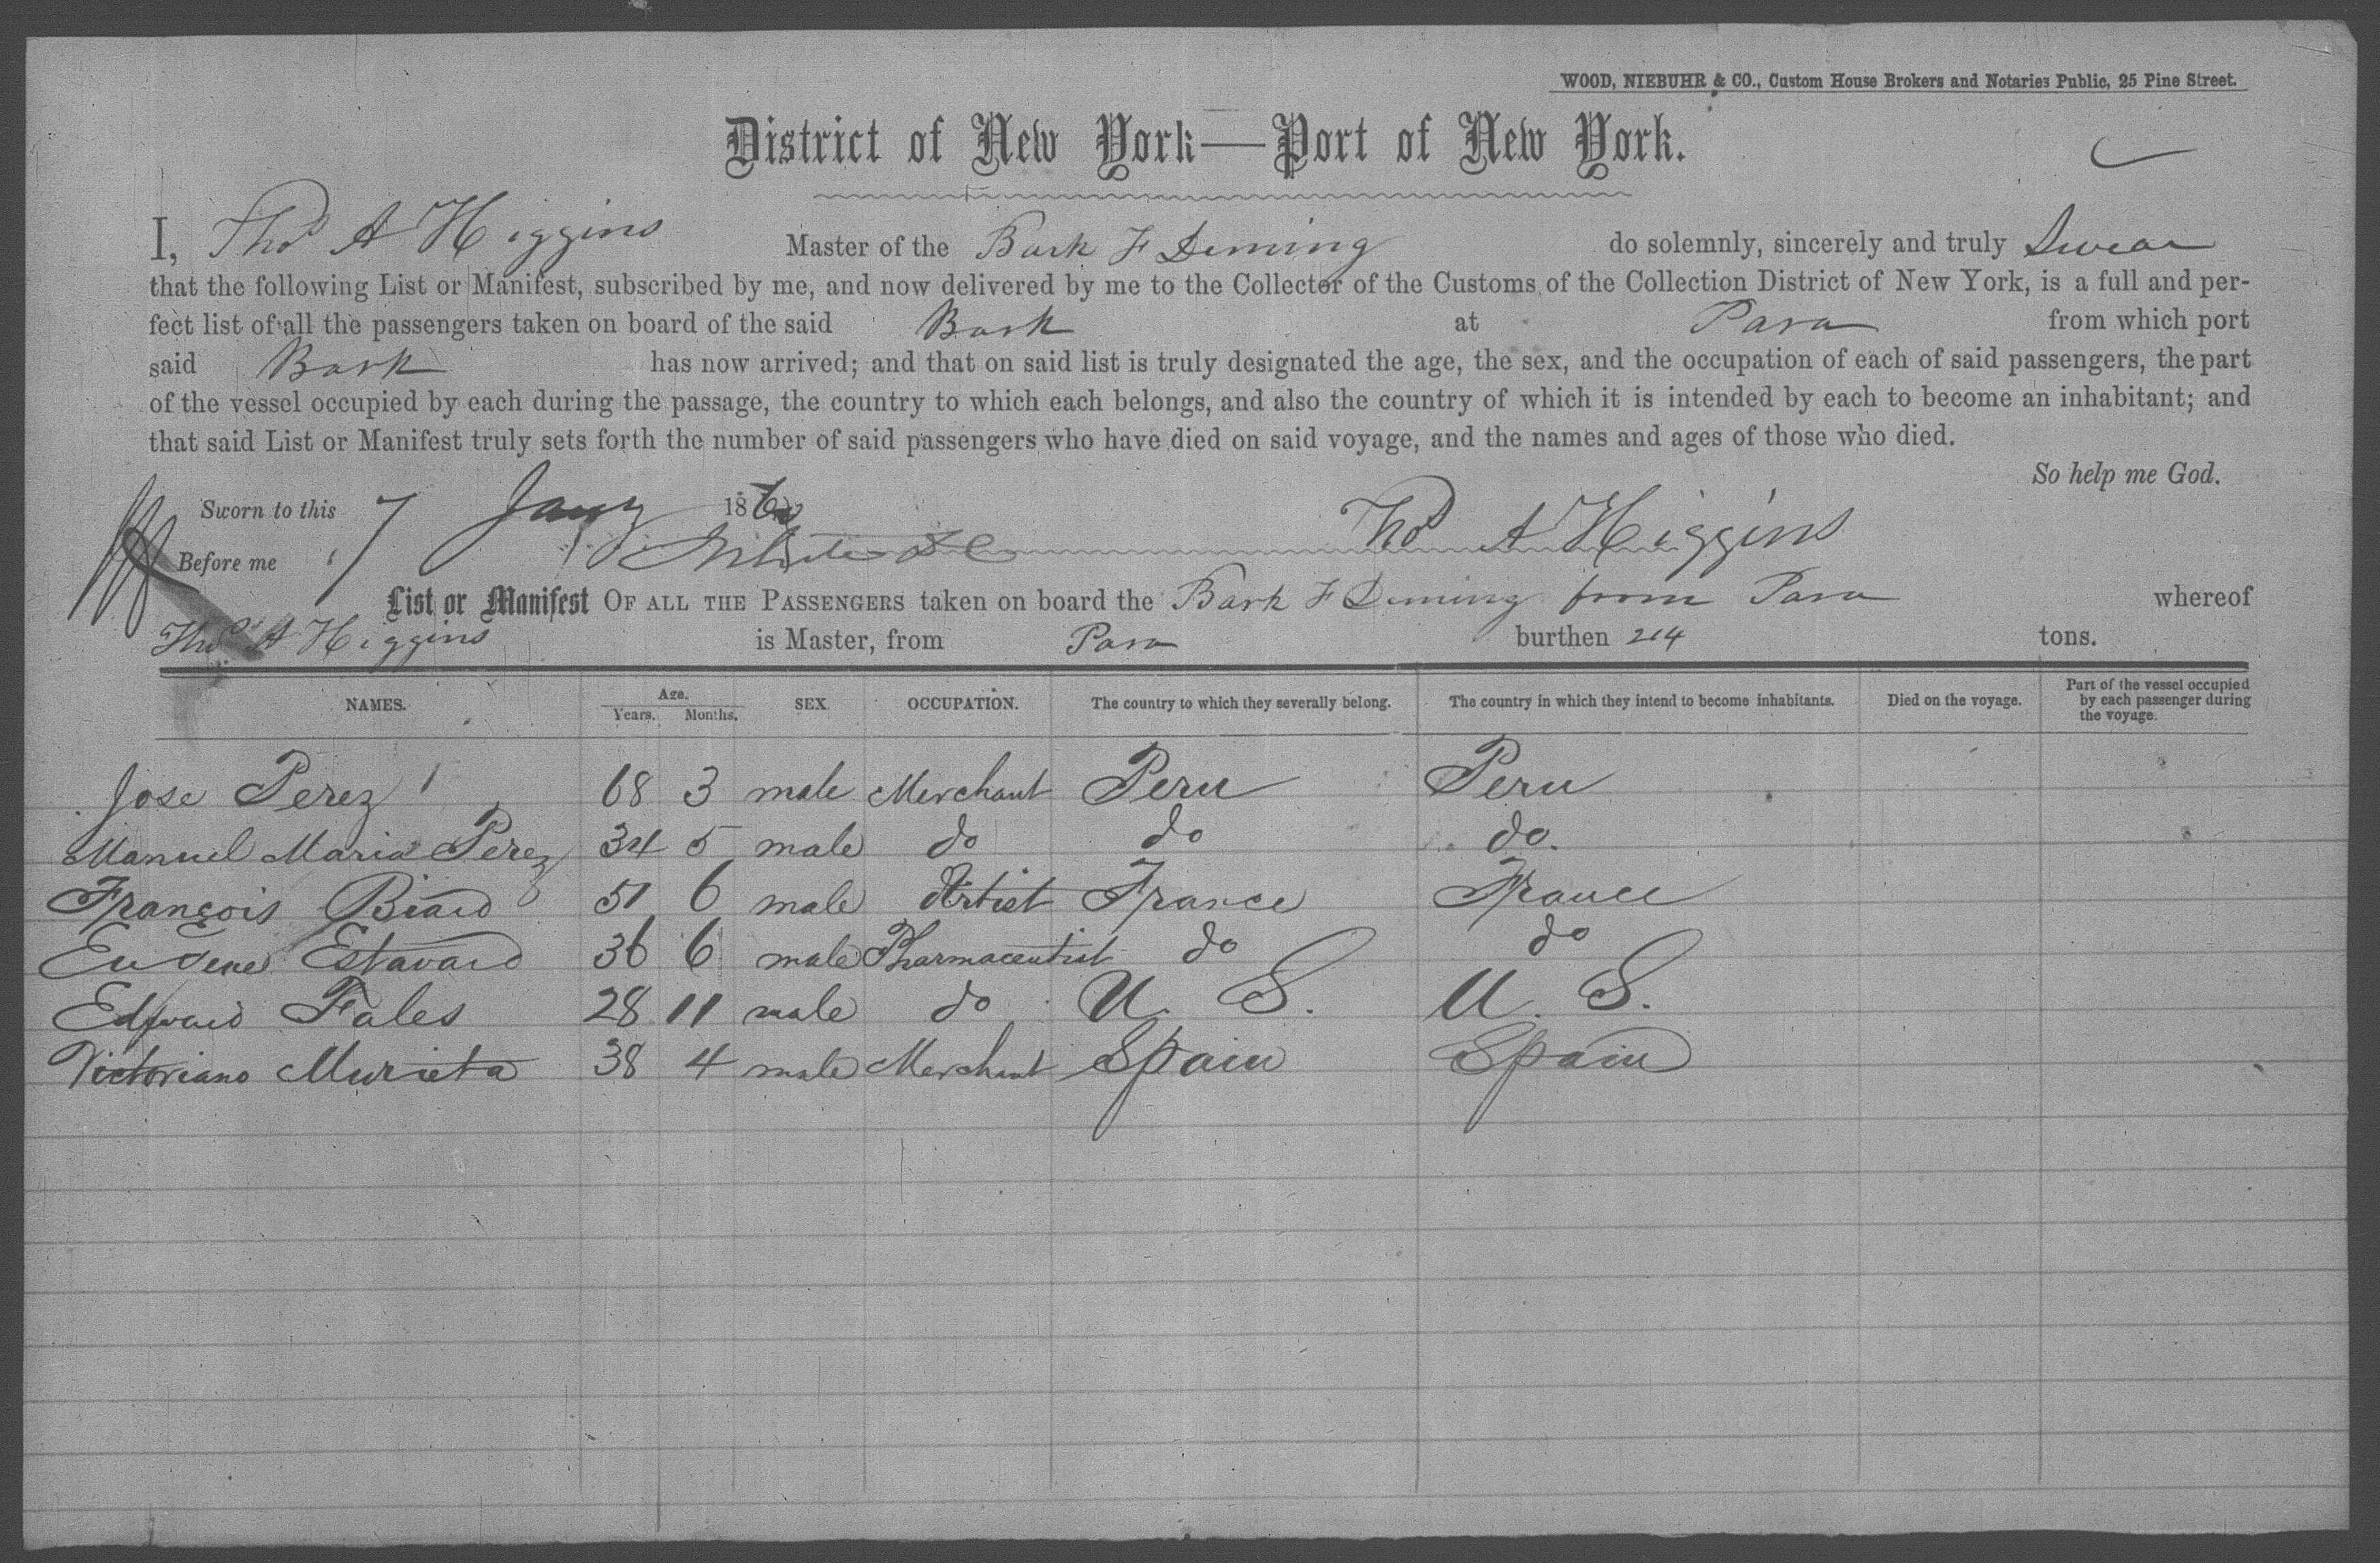 WOOD, NIEBUHR & CO., Custom House Brokers and Notaries Public, 25 Pine Street.
District of New York—Port of New York.
I, Thos A Higgins Master of the Bark F Deming do solemnly, sincerely and truly Swear
that the following List or Manifest, subscribed by me, and now delivered by me to the Collector of the Customs of the Collection District of New York, is a full and per-
fect list of all the passengers taken on board of the said Bark at Para from which port
said Bark has now arrived; and that on said list is truly designated the age, the sex, and the occupation of each of said passengers, the part
of the vessel occupied by each during the passage, the country to which each belongs, and also the country of which it is intended by each to become an inhabitant; and
that said List or Manifest truly sets forth the number of said passengers who have died on said voyage, and the names and ages of those who died.
So help me God.
Sworn to this 7 Jany 1860 Thos A Higgins
Before me
List or Manifest OF ALL THE PASSENGERS taken on board the Bark F Deming from Para whereof
Thos A Higgins is Master, from Para burthen 214 tons.
NAMES. Age. Years. Months. SEX OCCUPATION. The country to which they severally belong. The country in which they intend to become inhabitants. Died on the voyage. Part of the vessel occupied by each passenger during the voyage.
Jose Perez 68 3 male Merchant Peru Peru
Manuel Maria Perez 34 5 male do do do.
François Biard 51 6 male Artist France France
Eugene Estavard 36 6 male Pharmaceutist do do
Edward Fales 28 11 male do U. S. U. S.
Victoriano Murieta 38 4 male Merchant Spain Spain